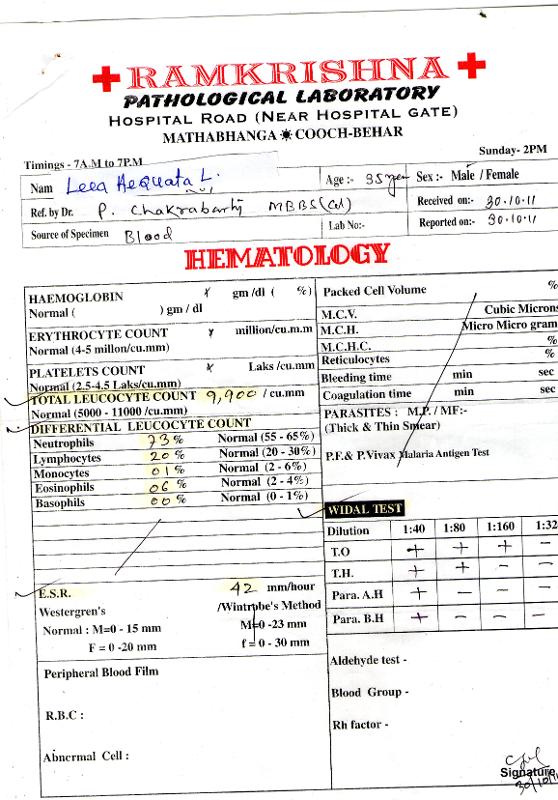 RAMKRISHNA
PATHOLOGICAL LABORATORY
HOSPITAL ROAD (NEAR HOSPITAL GATE)
MATHABHANGA ☀ COOCH-BEHAR
Timings - 7A.M to 7P.M Sunday- 2PM
Nam Leea L. Age :- 35 Sex :- Male / Female
Ref. by Dr. P. Chakrabarty MBBS (Cal) Received on:- 30.10.11
Lab No:- Reported on:- 30.10.11
Source of Specimen Blood
HEMATOLOGY
HAEMOGLOBIN x gm /dl ( %)
Normal ( ) gm / dl
ERYTHROCYTE COUNT x million/cu.m.m
Normal (4-5 millon/cu.mm)
PLATELETS COUNT x Laks /cu.mm
Normal (2.5-4.5 Laks/cu.mm)
TOTAL LEUCOCYTE COUNT 9,900 /cu.mm
Normal (5000 - 11000 /cu.mm)
DIFFERENTIAL LEUCOCYTE COUNT
Neutrophils 73 % Normal (55 - 65%)
Lymphocytes 20 % Normal (20 - 30%)
Monocytes 01 % Normal (2 - 6%)
Eosinophils 06 % Normal (2 - 4%)
Basophils 00 % Normal (0 - 1%)
E.S.R. 42 mm/hour
Westergren's /Wintrobe's Method
Normal : M=0 - 15 mm M=0 -23 mm
F = 0 -20 mm f = 0 - 30 mm
Peripheral Blood Film
R.B.C :
Abnormal Cell :
Packed Cell Volume %
M.C.V. Cubic Microns
M.C.H. Micro Micro gram
M.C.H.C. %
Reticulocytes %
Bleeding time min sec
Coagulation time min sec
PARASITES : M.P./ MF:-
(Thick & Thin Smear)
P.F.& P.Vivax Malaria Antigen Test
WIDAL TEST
Dilution 1:40 1:80 1:160 1:32
T.O + + + –
T.H. + + – –
Para. A.H + – – –
Para. B.H + – – –
Aldehyde test -
Blood Group -
Rh factor -
Signature
30/10/11